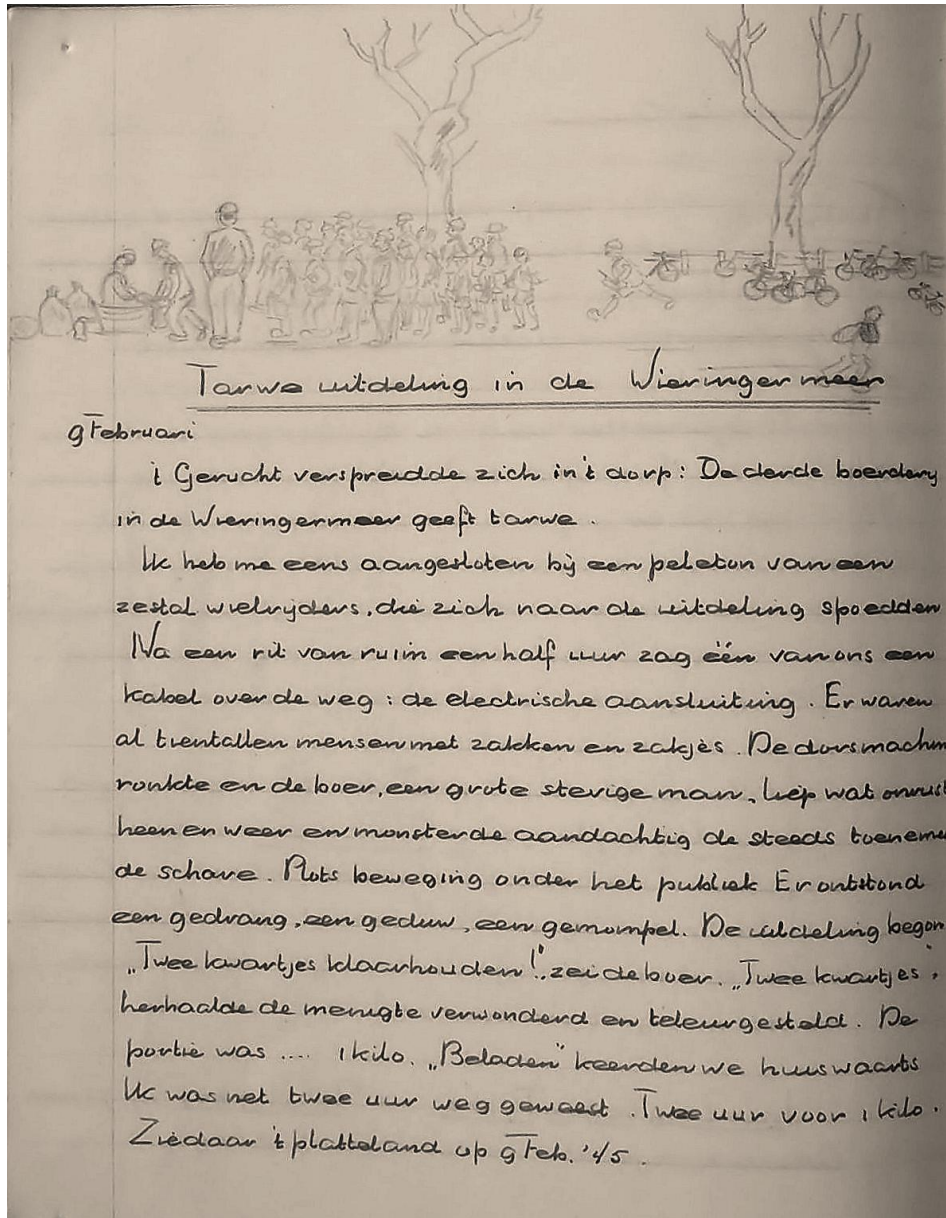 Tarwe uitdeling in de Wieringermeer
9 Februari
't Gerucht verspreidde zich in 't dorp: De derde boerdery
in de Wieringermeer geeft tarwe.
Ik heb me eens aangesloten bij een peleton van een
zestal wielrijders, die zich naar de uitdeling spoedden
Na een rit van ruim een half uur zag één van ons een
kabel over de weg: de electrische aansluiting. Er waren
al tientallen mensen met zakken en zakjes. De dorsmachin
ronkte en de boer, een grote stevige man, liep wat onrust
heen en weer en monsterde aandachtig de steeds toeneme
de schare. Plots beweging onder het publiek Er ontstond
een gedrang, een geduw, een gemompel. De uitdeling begon
„Twee kwartjes klaarhouden!", zei de boer. „Twee kwartjes",
herhaalde de menigte verwonderd en teleurgesteld. De
portie was .... 1 kilo. „Beladen" keerden we huiswaarts
Ik was net twee uur weg geweest. Twee uur voor 1 kilo.
Ziedaar 't platteland op 9 Feb. '45.